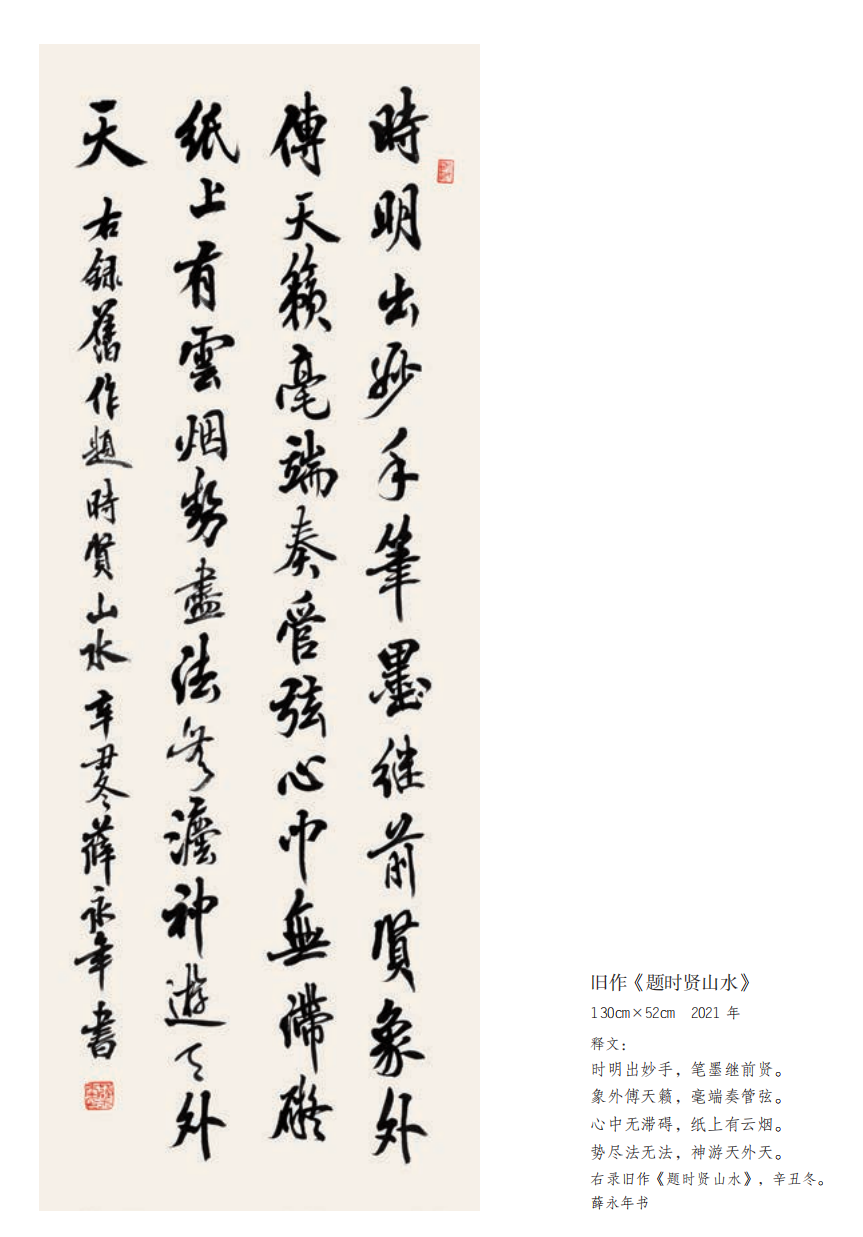 時明出妙手筆墨继前賢象外
傳天籟毫端奏管弦心中無滯礙
纸上有雲烟勢盡法无灋神遊天外
天
右録舊作題時賢山水辛丑冬薛永年書
旧作《题时贤山水》
130cm×52cm 2021 年
释文：
时明出妙手，笔墨继前贤。
象外傅天籁，毫端奏管弦。
心中无滞碍，纸上有云烟。
势尽法无法，神游天外天。
右录旧作《题时贤山水》，辛丑冬。
薛永年书